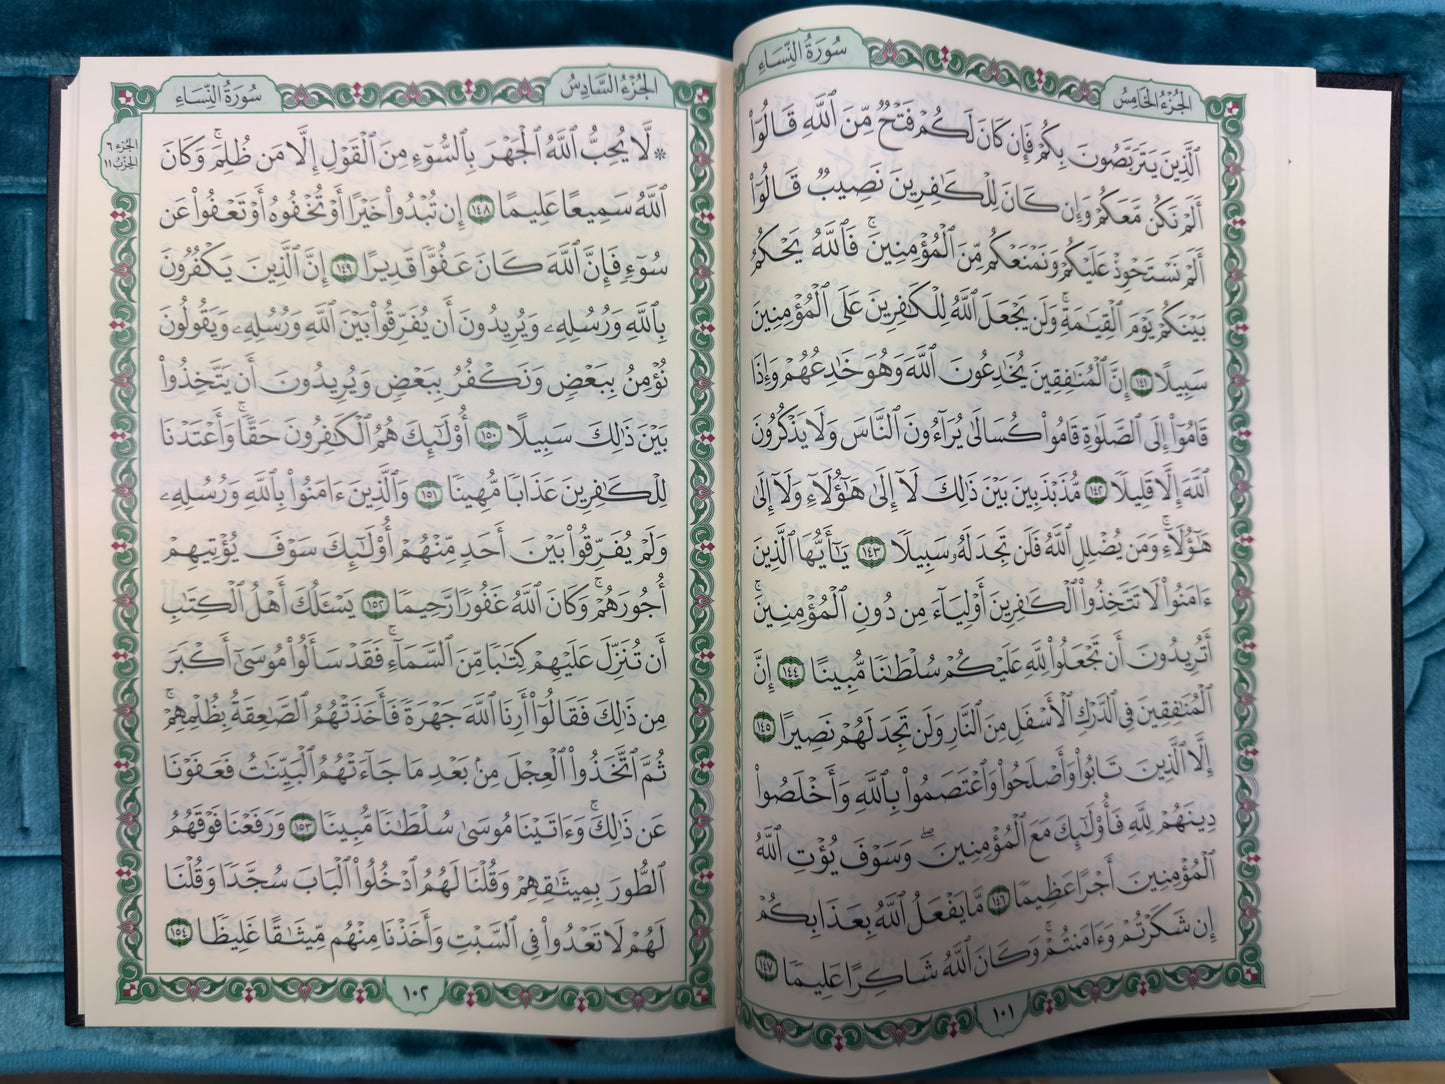 سُورَةُ النِّسَاءِ
الجُزْءُ الخَامِسُ
ٱلَّذِينَ يَتَرَبَّصُونَ بِكُمْ فَإِن كَانَ لَكُمْ فَتْحٌ مِّنَ ٱللَّهِ قَالُوٓا۟
أَلَمْ نَكُن مَّعَكُمْ وَإِن كَانَ لِلْكَٰفِرِينَ نَصِيبٌ قَالُوٓا۟
أَلَمْ نَسْتَحْوِذْ عَلَيْكُمْ وَنَمْنَعْكُم مِّنَ ٱلْمُؤْمِنِينَ ۚ فَٱللَّهُ يَحْكُمُ
بَيْنَكُمْ يَوْمَ ٱلْقِيَٰمَةِ ۗ وَلَن يَجْعَلَ ٱللَّهُ لِلْكَٰفِرِينَ عَلَى ٱلْمُؤْمِنِينَ
سَبِيلًا ١٤١ إِنَّ ٱلْمُنَٰفِقِينَ يُخَٰدِعُونَ ٱللَّهَ وَهُوَ خَٰدِعُهُمْ وَإِذَا
قَامُوٓا۟ إِلَى ٱلصَّلَوٰةِ قَامُوا۟ كُسَالَىٰ يُرَآءُونَ ٱلنَّاسَ وَلَا يَذْكُرُونَ
ٱللَّهَ إِلَّا قَلِيلًا ١٤٢ مُّذَبْذَبِينَ بَيْنَ ذَٰلِكَ لَآ إِلَىٰ هَٰٓؤُلَآءِ وَلَآ إِلَىٰ
هَٰٓؤُلَآءِ ۚ وَمَن يُضْلِلِ ٱللَّهُ فَلَن تَجِدَ لَهُۥ سَبِيلًا ١٤٣ يَٰٓأَيُّهَا ٱلَّذِينَ
ءَامَنُوا۟ لَا تَتَّخِذُوا۟ ٱلْكَٰفِرِينَ أَوْلِيَآءَ مِن دُونِ ٱلْمُؤْمِنِينَ ۚ
أَتُرِيدُونَ أَن تَجْعَلُوا۟ لِلَّهِ عَلَيْكُمْ سُلْطَٰنًا مُّبِينًا ١٤٤ إِنَّ
ٱلْمُنَٰفِقِينَ فِى ٱلدَّرْكِ ٱلْأَسْفَلِ مِنَ ٱلنَّارِ وَلَن تَجِدَ لَهُمْ نَصِيرًا ١٤٥
إِلَّا ٱلَّذِينَ تَابُوا۟ وَأَصْلَحُوا۟ وَٱعْتَصَمُوا۟ بِٱللَّهِ وَأَخْلَصُوا۟
دِينَهُمْ لِلَّهِ فَأُو۟لَٰٓئِكَ مَعَ ٱلْمُؤْمِنِينَ ۖ وَسَوْفَ يُؤْتِ ٱللَّهُ
ٱلْمُؤْمِنِينَ أَجْرًا عَظِيمًا ١٤٦ مَّا يَفْعَلُ ٱللَّهُ بِعَذَابِكُمْ
إِن شَكَرْتُمْ وَءَامَنتُمْ ۚ وَكَانَ ٱللَّهُ شَاكِرًا عَلِيمًا ١٤٧
١٠١
سُورَةُ النِّسَاءِ
الجُزْءُ السَّادِسُ
الجزء ٦
الحزب ١١
۞ لَّا يُحِبُّ ٱللَّهُ ٱلْجَهْرَ بِٱلسُّوٓءِ مِنَ ٱلْقَوْلِ إِلَّا مَن ظُلِمَ ۚ وَكَانَ
ٱللَّهُ سَمِيعًا عَلِيمًا ١٤٨ إِن تُبْدُوا۟ خَيْرًا أَوْ تُخْفُوهُ أَوْ تَعْفُوا۟ عَن
سُوٓءٍ فَإِنَّ ٱللَّهَ كَانَ عَفُوًّا قَدِيرًا ١٤٩ إِنَّ ٱلَّذِينَ يَكْفُرُونَ
بِٱللَّهِ وَرُسُلِهِۦ وَيُرِيدُونَ أَن يُفَرِّقُوا۟ بَيْنَ ٱللَّهِ وَرُسُلِهِۦ وَيَقُولُونَ
نُؤْمِنُ بِبَعْضٍ وَنَكْفُرُ بِبَعْضٍ وَيُرِيدُونَ أَن يَتَّخِذُوا۟
بَيْنَ ذَٰلِكَ سَبِيلًا ١٥٠ أُو۟لَٰٓئِكَ هُمُ ٱلْكَٰفِرُونَ حَقًّا ۚ وَأَعْتَدْنَا
لِلْكَٰفِرِينَ عَذَابًا مُّهِينًا ١٥١ وَٱلَّذِينَ ءَامَنُوا۟ بِٱللَّهِ وَرُسُلِهِۦ
وَلَمْ يُفَرِّقُوا۟ بَيْنَ أَحَدٍ مِّنْهُمْ أُو۟لَٰٓئِكَ سَوْفَ يُؤْتِيهِمْ
أُجُورَهُمْ ۗ وَكَانَ ٱللَّهُ غَفُورًا رَّحِيمًا ١٥٢ يَسْـَٔلُكَ أَهْلُ ٱلْكِتَٰبِ
أَن تُنَزِّلَ عَلَيْهِمْ كِتَٰبًا مِّنَ ٱلسَّمَآءِ ۚ فَقَدْ سَأَلُوا۟ مُوسَىٰٓ أَكْبَرَ
مِن ذَٰلِكَ فَقَالُوٓا۟ أَرِنَا ٱللَّهَ جَهْرَةً فَأَخَذَتْهُمُ ٱلصَّٰعِقَةُ بِظُلْمِهِمْ ۚ
ثُمَّ ٱتَّخَذُوا۟ ٱلْعِجْلَ مِنۢ بَعْدِ مَا جَآءَتْهُمُ ٱلْبَيِّنَٰتُ فَعَفَوْنَا
عَن ذَٰلِكَ ۚ وَءَاتَيْنَا مُوسَىٰ سُلْطَٰنًا مُّبِينًا ١٥٣ وَرَفَعْنَا فَوْقَهُمُ
ٱلطُّورَ بِمِيثَٰقِهِمْ وَقُلْنَا لَهُمُ ٱدْخُلُوا۟ ٱلْبَابَ سُجَّدًا وَقُلْنَا
لَهُمْ لَا تَعْدُوا۟ فِى ٱلسَّبْتِ وَأَخَذْنَا مِنْهُم مِّيثَٰقًا غَلِيظًا ١٥٤
١٠٢